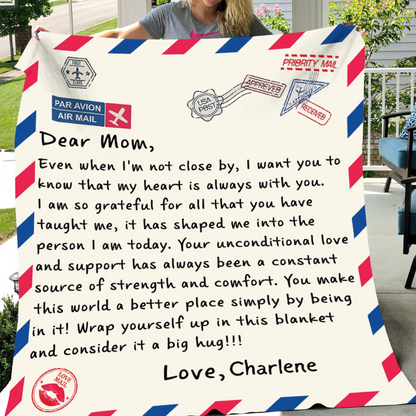 FIRST
CLASS
PRIORITY MAIL
APPREVER
USA
POST
RECEIVEB
PAR AVION
AIR MAIL
Dear Mom,
Even when I'm not close by, I want you to
know that my heart is always with you.
I am so grateful for all that you have
taught me, it has shaped me into the
person I am today. Your unconditional love
and support has always been a constant
source of strength and comfort. You make
this world a better place simply by being
in it! Wrap yourself up in this blanket
and consider it a big hug!!!
Love, Charlene
LOVE
MAIL